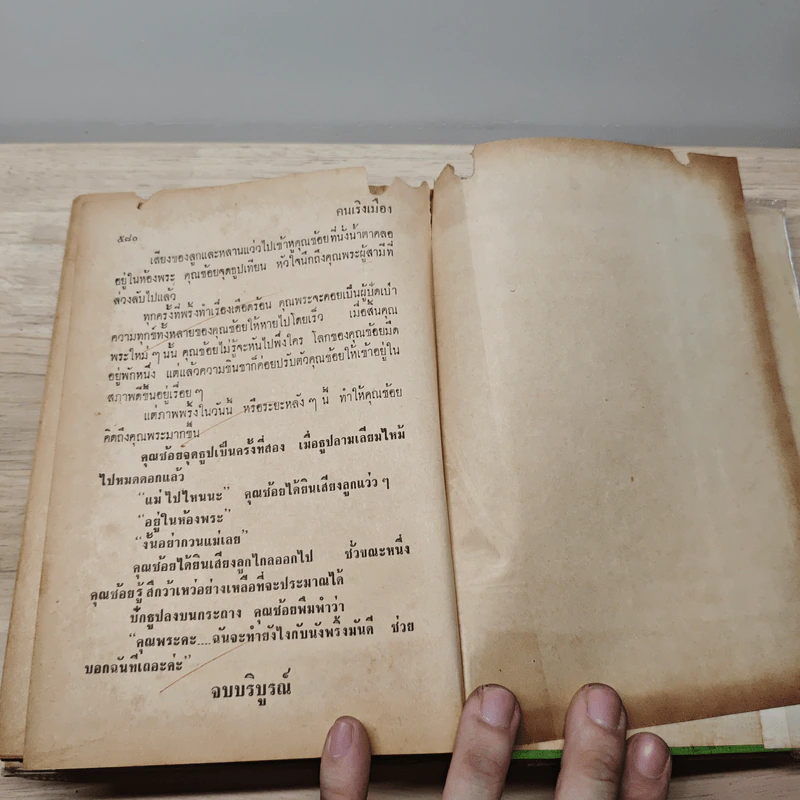 คนเริงเมือง
๕๘๐
เสียงของลูกและหลานแว่วไปเข้าหูคุณช้อยที่นั่งน้ำตาคลอ
อยู่ในห้องพระ คุณช้อยจุดธูปเทียน หัวใจนึกถึงคุณพระผู้สามีที่
ล่วงลับไปแล้ว
ทุกครั้งที่พริ้งทำเรื่องเดือดร้อน คุณพระจะคอยเป็นผู้ปัดเป่า
ความทุกข์ทั้งหลายของคุณช้อยให้หายไปโดยเร็ว เมื่อสิ้นคุณ
พระใหม่ ๆ นั้น คุณช้อยไม่รู้จะหันไปพึ่งใคร โลกของคุณช้อยมืด
อยู่พักหนึ่ง แต่แล้วความชินชาก็ค่อยปรับตัวคุณช้อยให้เข้าอยู่ใน
สภาพดีขึ้นอยู่เรื่อย ๆ
แต่ภาพพริ้งในวันนี้ หรือระยะหลัง ๆ นี้ ทำให้คุณช้อย
คิดถึงคุณพระมากขึ้น
คุณช้อยจุดธูปเป็นครั้งที่สอง เมื่อธูปลามเลียมไหม้
ไปหมดดอกแล้ว
"แม่ไปไหนนะ" คุณช้อยได้ยินเสียงลูกแว่ว ๆ
"อยู่ในห้องพระ"
"งั้นอย่ากวนแม่เลย"
คุณช้อยได้ยินเสียงลูกไกลออกไป ชั่วขณะหนึ่ง
คุณช้อยรู้สึกว้าเหว่อย่างเหลือที่จะประมาณได้
ปักธูปลงบนกระถาง คุณช้อยพึมพำว่า
"คุณพระคะ....ฉันจะทำยังไงกับนังพริ้งมันดี ช่วย
บอกฉันทีเถอะค่ะ"
จบบริบูรณ์